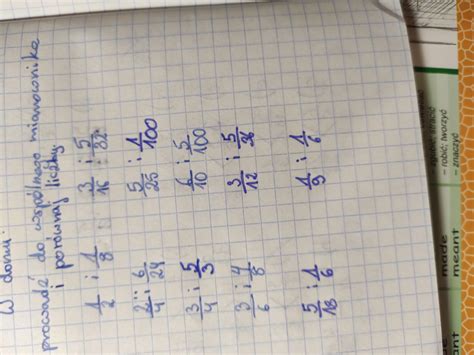 W domu:
prowadź do wspólnego mianownika
i porównaj liczby
1/2 i 1/8   3/16 i 5/32
2/4 i 6/24   5/25 i 1/100
3/4 i 5/3   6/10 i 5/100
3/6 i 4/8   3/12 i 5/36
5/18 i 1/6   1/9 i 1/6
– robić, tworzyć
– znaczyć
made
meant